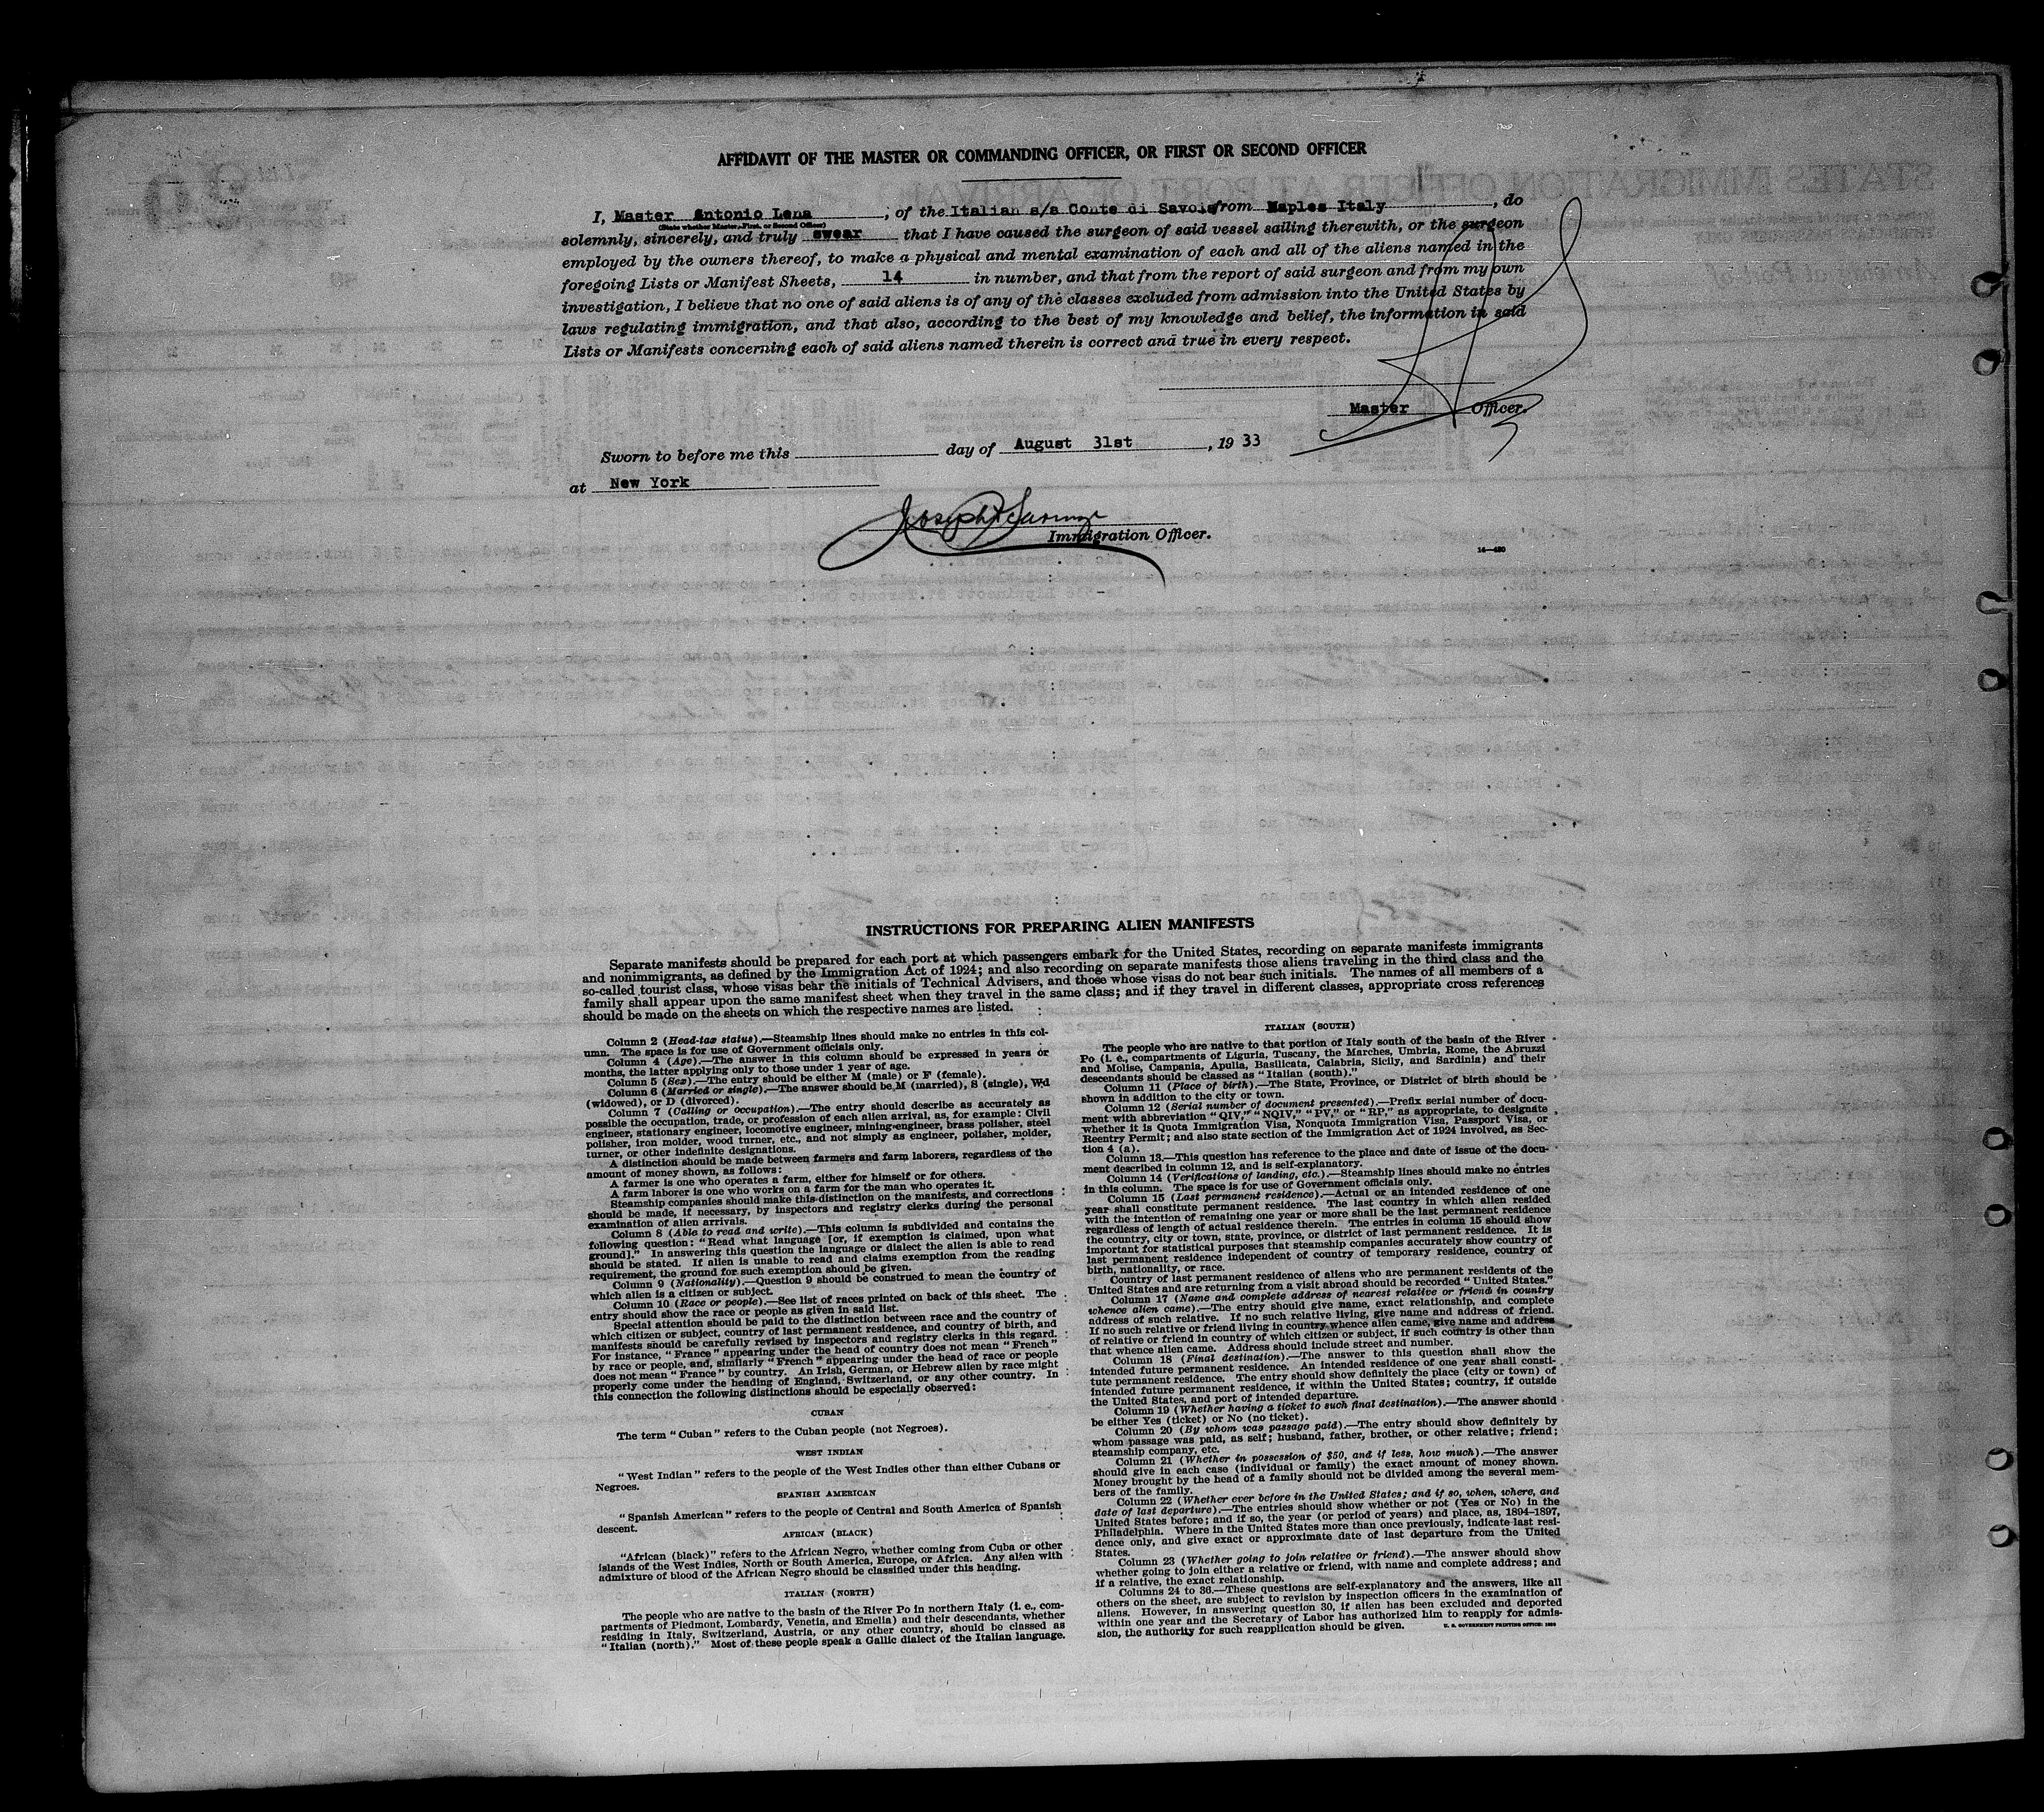 AFFIDAVIT OF THE MASTER OR COMMANDING OFFICER, OR FIRST OR SECOND OFFICER
I, Master Antonio Lena, of the Italian s/s Conte di Savoia from Naples Italy, do
(State whether Master, First, or Second Officer)
solemnly, sincerely, and truly swear that I have caused the surgeon of said vessel sailing therewith, or the surgeon
employed by the owners thereof, to make a physical and mental examination of each and all of the aliens named in the
foregoing Lists or Manifest Sheets, 14 in number, and that from the report of said surgeon and from my own
investigation, I believe that no one of said aliens is of any of the classes excluded from admission into the United States by
laws regulating immigration, and that also, according to the best of my knowledge and belief, the information in said
Lists or Manifests concerning each of said aliens named therein is correct and true in every respect.
Master Officer.
Sworn to before me this day of August 31st, 1933
at New York
Joseph
Immigration Officer.
14—420
INSTRUCTIONS FOR PREPARING ALIEN MANIFESTS
Separate manifests should be prepared for each port at which passengers embark for the United States, recording on separate manifests immigrants
and nonimmigrants, as defined by the Immigration Act of 1924; and also recording on separate manifests those aliens traveling in the third class and the
so-called tourist class, whose visas bear the initials of Technical Advisers, and those whose visas do not bear such initials. The names of all members of a
family shall appear upon the same manifest sheet when they travel in the same class; and if they travel in different classes, appropriate cross references
should be made on the sheets on which the respective names are listed.
Column 2 (Head-tax status).—Steamship lines should make no entries in this col-
umn. The space is for use of Government officials only.
Column 4 (Age).—The answer in this column should be expressed in years or
months, the latter applying only to those under 1 year of age.
Column 5 (Sex).—The entry should be either M (male) or F (female).
Column 6 (Married or single).—The answer should be M (married), S (single), Wd
(widowed), or D (divorced).
Column 7 (Calling or occupation).—The entry should describe as accurately as
possible the occupation, trade, or profession of each alien arrival, as, for example: Civil
engineer, stationary engineer, locomotive engineer, mining engineer, brass polisher, steel
polisher, iron molder, wood turner, etc., and not simply as engineer, polisher, molder,
turner, or other indefinite designations.
A distinction should be made between farmers and farm laborers, regardless of the
amount of money shown, as follows:
A farmer is one who operates a farm, either for himself or for others.
A farm laborer is one who works on a farm for the man who operates it.
Steamship companies should make this distinction on the manifests, and corrections
should be made, if necessary, by inspectors and registry clerks during the personal
examination of alien arrivals.
Column 8 (Able to read and write).—This column is subdivided and contains the
following question: "Read what language [or, if exemption is claimed, upon what
ground]." In answering this question the language or dialect the alien is able to read
should be stated. If alien is unable to read and claims exemption from the reading
requirement, the ground for such exemption should be given.
Column 9 (Nationality).—Question 9 should be construed to mean the country of
which alien is a citizen or subject.
Column 10 (Race or people).—See list of races printed on back of this sheet. The
entry should show the race or people as given in said list.
Special attention should be paid to the distinction between race and the country of
which citizen or subject, country of last permanent residence, and country of birth, and
manifests should be carefully revised by inspectors and registry clerks in this regard.
For instance, "France" appearing under the head of country does not mean "French"
by race or people, and, similarly "French" appearing under the head of race or people
does not mean "France" by country. An Irish, German, or Hebrew alien by race might
properly come under the heading of England, Switzerland, or any other country. In
this connection the following distinctions should be especially observed:
CUBAN
The term "Cuban" refers to the Cuban people (not Negroes).
WEST INDIAN
"West Indian" refers to the people of the West Indies other than either Cubans or
Negroes.
SPANISH AMERICAN
"Spanish American" refers to the people of Central and South America of Spanish
descent.
AFRICAN (BLACK)
"African (black)" refers to the African Negro, whether coming from Cuba or other
islands of the West Indies, North or South America, Europe, or Africa. Any alien with
admixture of blood of the African Negro should be classified under this heading.
ITALIAN (NORTH)
The people who are native to the basin of the River Po in northern Italy (i. e., com-
partments of Piedmont, Lombardy, Venetia, and Emelia) and their descendants, whether
residing in Italy, Switzerland, Austria, or any other country, should be classed as
"Italian (north)." Most of these people speak a Gallic dialect of the Italian language.
ITALIAN (SOUTH)
The people who are native to that portion of Italy south of the basin of the River
Po (i. e., compartments of Liguria, Tuscany, the Marches, Umbria, Rome, the Abruzzi
and Molise, Campania, Apulia, Basilicata, Calabria, Sicily, and Sardinia) and their
descendants should be classed as "Italian (south)."
Column 11 (Place of birth).—The State, Province, or District of birth should be
shown in addition to the city or town.
Column 12 (Serial number of document presented).—Prefix serial number of docu-
ment with abbreviation "QIV," "NQIV," "PV," or "RP," as appropriate, to designate
whether it is Quota Immigration Visa, Nonquota Immigration Visa, Passport Visa, or
Reentry Permit; and also state section of the Immigration Act of 1924 involved, as Sec-
tion 4 (a).
Column 13.—This question has reference to the place and date of issue of the docu-
ment described in column 12, and is self-explanatory.
Column 14 (Verifications of landing, etc.).—Steamship lines should make no entries
in this column. The space is for use of Government officials only.
Column 15 (Last permanent residence).—Actual or an intended residence of one
year shall constitute permanent residence. The last country in which alien resided
with the intention of remaining one year or more shall be the last permanent residence
regardless of length of actual residence therein. The entries in column 15 should show
the country, city or town, state, province, or district of last permanent residence. It is
important for statistical purposes that steamship companies accurately show country of
last permanent residence independent of country of temporary residence, country of
birth, nationality, or race.
Country of last permanent residence of aliens who are permanent residents of the
United States and are returning from a visit abroad should be recorded "United States."
Column 17 (Name and complete address of nearest relative or friend in country
whence alien came).—The entry should give name, exact relationship, and complete
address of such relative. If no such relative living, give name and address of friend.
If no such relative or friend living in country whence alien came, give name and address
of relative or friend in country of which citizen or subject, if such country is other than
that whence alien came. Address should include street and number.
Column 18 (Final destination).—The answer to this question shall show the
intended future permanent residence. An intended residence of one year shall consti-
tute permanent residence. The entry should show definitely the place (city or town) of
intended future permanent residence, if within the United States; country, if outside
the United States, and port of intended departure.
Column 19 (Whether having a ticket to such final destination).—The answer should
be either Yes (ticket) or No (no ticket).
Column 20 (By whom was passage paid).—The entry should show definitely by
whom passage was paid, as self; husband, father, brother, or other relative; friend;
steamship company, etc.
Column 21 (Whether in possession of $50, and if less, how much).—The answer
should give in each case (individual or family) the exact amount of money shown.
Money brought by the head of a family should not be divided among the several mem-
bers of the family.
Column 22 (Whether ever before in the United States; and if so, when, where, and
date of last departure).—The entries should show whether or not (Yes or No) in the
United States before; and if so, the year (or period of years) and place, as, 1894–1897,
Philadelphia. Where in the United States more than once previously, indicate last resi-
dence only, and give exact or approximate date of last departure from the United
States.
Column 23 (Whether going to join relative or friend).—The answer should show
whether going to join either a relative or friend, with name and complete address; and
if a relative, the exact relationship.
Columns 24 to 36.—These questions are self-explanatory and the answers, like all
others on the sheet, are subject to revision by inspection officers in the examination of
aliens. However, in answering question 30, if alien has been excluded and deported
within one year and the Secretary of Labor has authorized him to reapply for admis-
sion, the authority for such reapplication should be given.
U. S. GOVERNMENT PRINTING OFFICE: